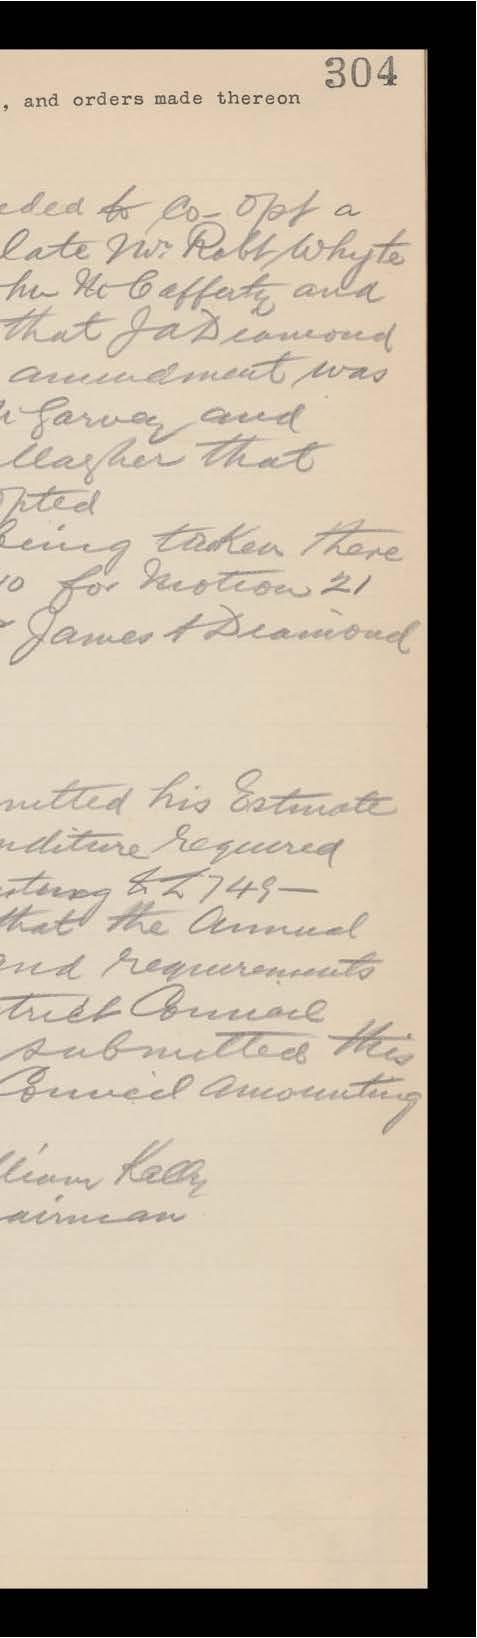 304
, and orders made thereon
eded to Co-opt a
late Mr. Robt Whyte
hn McCafferty and
that JaDiamond
amendment was
Garvey and
llagher that
pted
being taken there
10 for Motion 21
James A Diamond
mitted his Estimate
nditure required
£749—
that the Annual
and requirements
trict Council
submitted this
Council amounting
lliam Kelly
airman